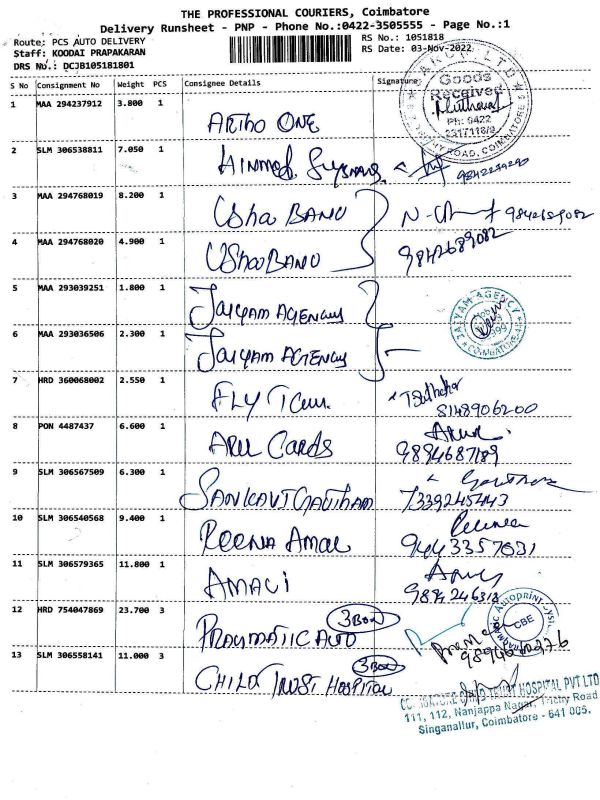 THE PROFESSIONAL COURIERS, Coimbatore
Delivery Runsheet - PNP - Phone No.:0422-3505555 - Page No.:1
Route: PCS AUTO DELIVERY RS No.: 1051818
Staff: KOODAI PRAPAKARAN RS Date: 03-Nov-2022
DRS No.: DCJB105181801
S No Consignment No Weight PCS Consignee Details Signature
1 MAA 294237912 3.800 1 ARTHO ONE
Goods
Received
Ph: 0422
2 SLM 306538811 7.050 1
3 MAA 294768019 8.200 1 Usha BANU 9842689082
4 MAA 294768020 4.900 1 Usha BANU 9842689082
5 MAA 293039251 1.800 1 Jaiyam Agencies
6 MAA 293036506 2.300 1 Jaiyam Agencies
7 HRD 360068002 2.550 1 FLY 8148906200
8 PON 4487437 6.600 1 ARUL CARDS 9894687189
9 SLM 306567509 6.300 1 7339245443
10 SLM 306540568 9.400 1 REENA AMAL 9443357031
11 SLM 306579365 11.800 1 AMALI 9894246318
12 HRD 754047869 23.700 3 PRAGMATIC AUTO 3 Box
CBE
13 SLM 306558141 11.000 3 CHILD TRUST HOSPITAL 3 Box
TRUST HOSPITAL PVT LTD
111, 112, Nanjappa Nagar, Trichy Road
Singanallur, Coimbatore - 641 005.